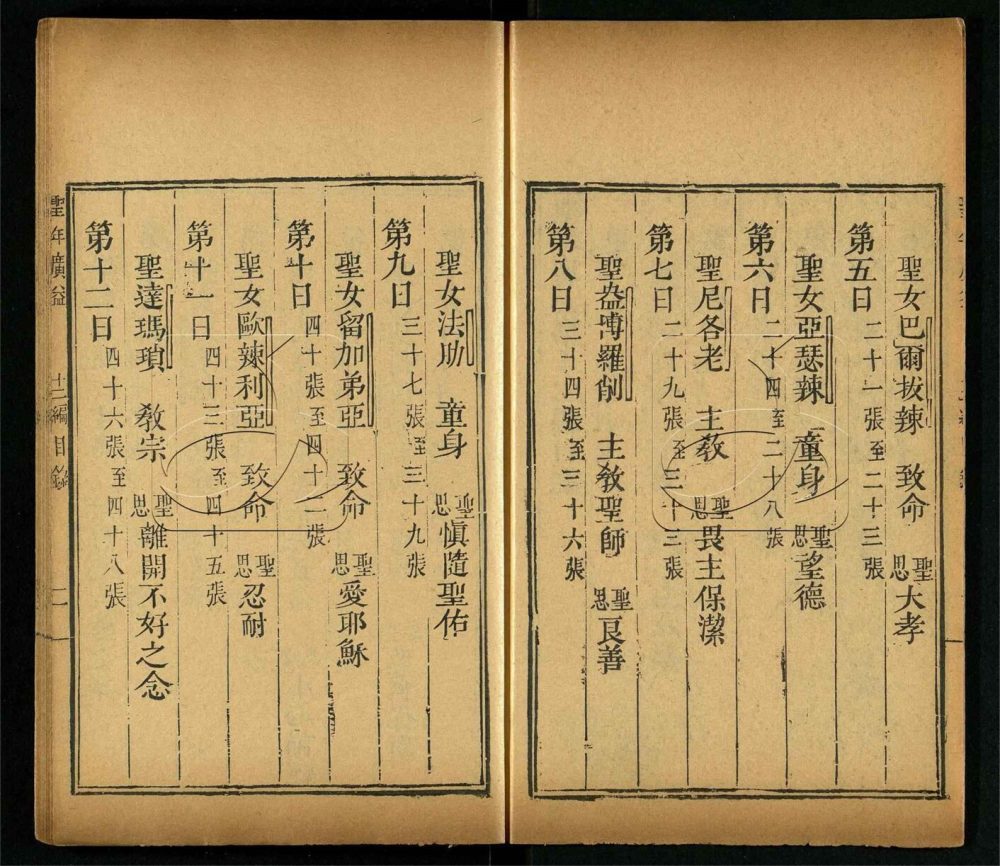 聖女巴爾拔辣 致命 聖思大孝
第五日 二十一張至二十三張
聖女亞瑟辣 童身 聖思望德
第六日 二十四至二十八張
聖尼各老 主教 聖思畏主保潔
第七日 二十九張至三十三張
聖盎博羅削 主教聖師 聖思良善
第八日 三十四張至三十六張
聖女法助 童身 聖思愼隨聖佑
第九日 三十七張至三十九張
聖女留加弟亞 致命 聖思愛耶穌
第十日 四十張至四十二張
聖女歐辣利亞 致命 聖思忍耐
第十一日 四十三張至四十五張
聖達瑪瑣 教宗 聖思離開不好之念
第十二日 四十六張至四十八張
聖年廣益 十二編目錄 二